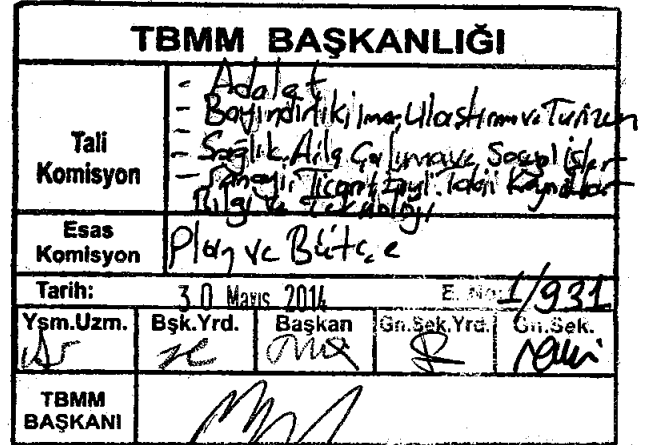 TBMM BAŞKANLIĞI
Tali Komisyon
- Adalet
- Bayındırlık, İmar, Ulaştırma ve Turizm
- Sağlık, Aile, Çalışma ve Sosyal İşler
- Sanayi, Ticaret, Enerji, Tabii Kaynaklar
Bilgi ve Teknoloji
Esas Komisyon
Plan ve Bütçe
Tarih: 30 Mayıs 2014 E. No: 1/931
Ysm.Uzm. Bşk.Yrd. Başkan Gn.Sek.Yrd. Gn.Sek.
TBMM BAŞKANI